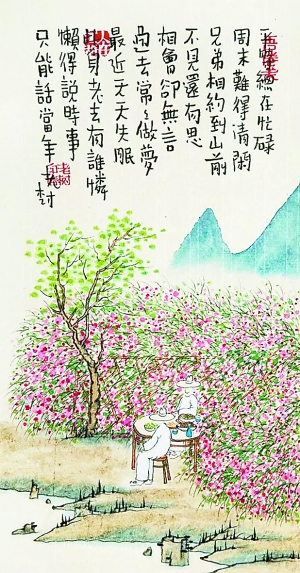 總在忙碌
周末難得清閑
兄弟相約到山前
不見還有思
相會卻無言
過去常々做夢
最近天々失眠
身老去有誰憐
懶得説時事
只能話當年 老樹